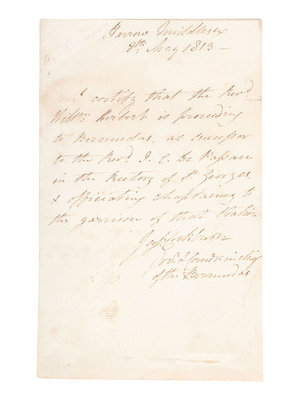 Harrow Middlesex
8th May 1813 -
I certify that the Revd
Willm Herbert is proceeding
to Bermudas, as successor
to the Revd J. C. De Passau
in the Rectory of St Georges,
& officiating chaplaincy to
the garrison of that Station
in Chief
of the Bermudas